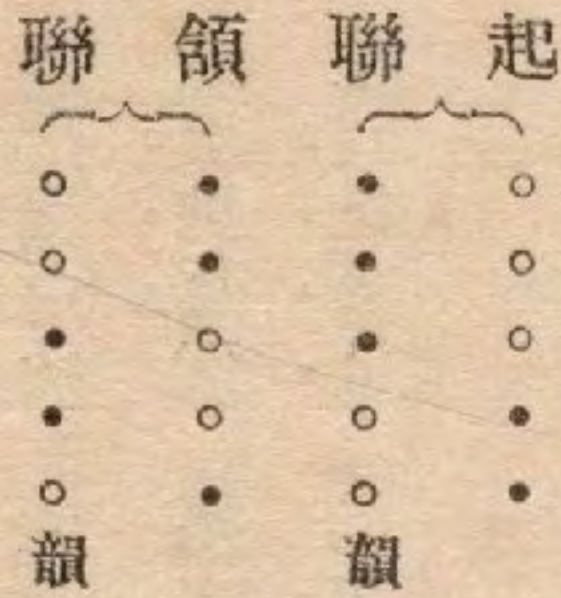 起聯
○○○●●
●●●○○韻
頷聯
●●○○●
○○●●○韻